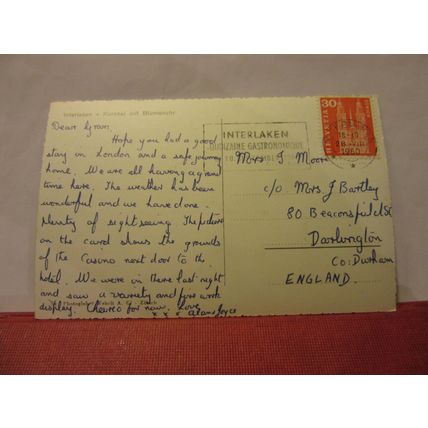 Interlaken - Kursaal mit Blumenuhr
Dear Gran,
Hope you had a good
stay in London and a safe journey
home. We are all having a great
time here. The weather has been
wonderful and we have done
plenty of sight seeing. The picture
on the card shows the grounds
of the Casino next door to the
hotel. We were in there last night
and saw a variety and fire work
display. Cheerio for now. Love
Alan & Joyce
x x x
INTERLAKEN
QUINZAINE GASTRONOMIQUE
30
HELVETIA
1960
Mrs T. Moore
c/o Mrs J Bartley
80 Beaconsfield St
Darlington
Co: Durham
ENGLAND.